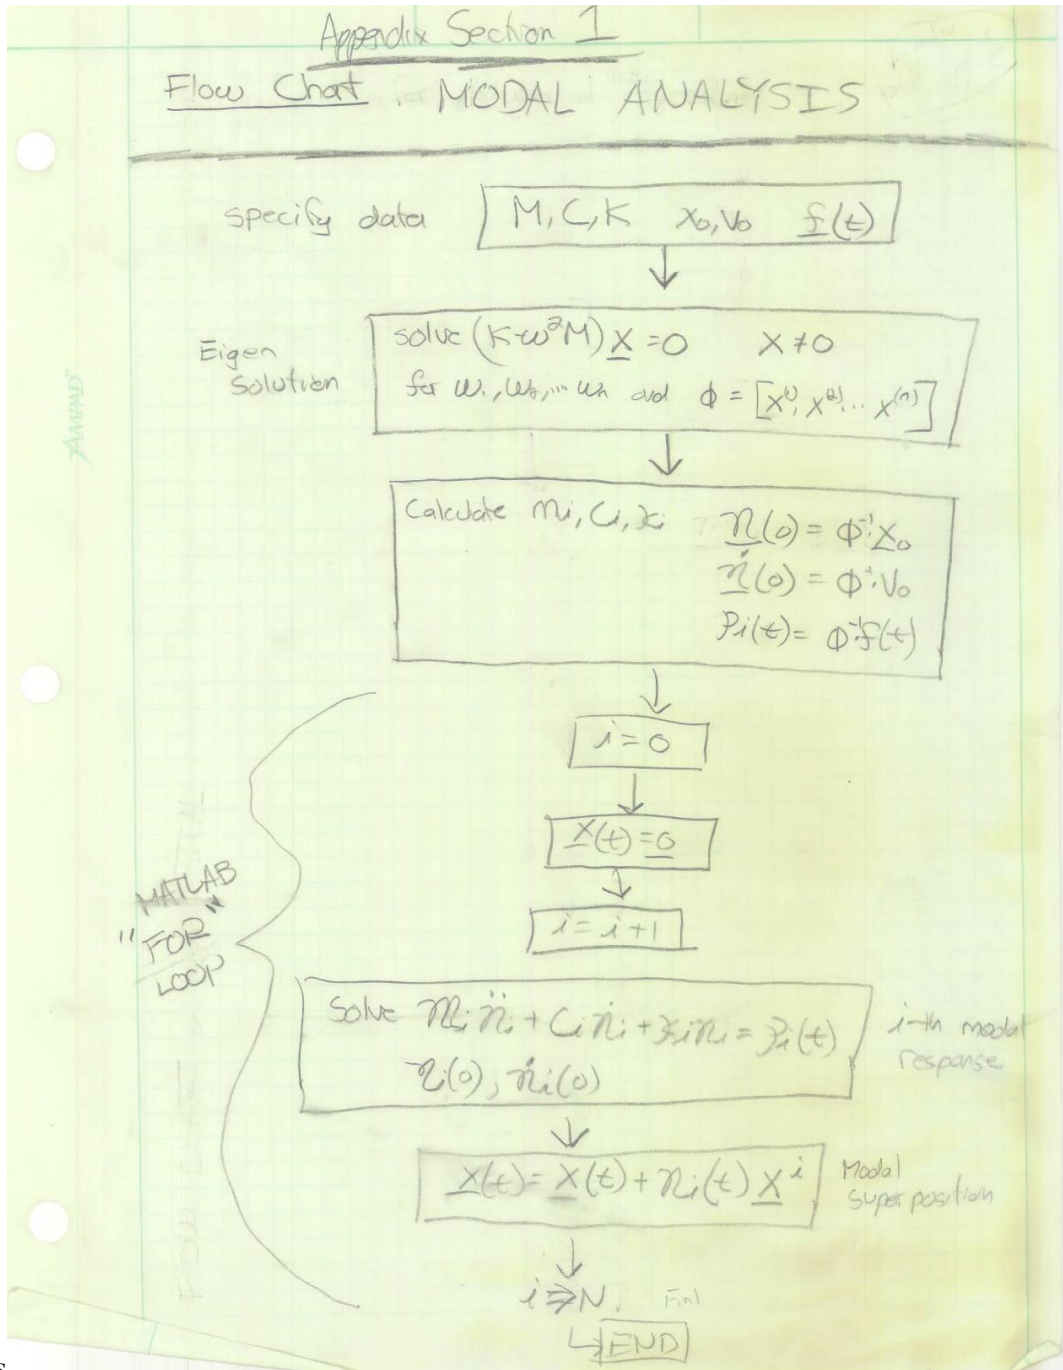 Appendix Section 1
Flow Chart MODAL ANALYSIS
specify data
M, C, K x₀, v₀ f(t)
Eigen
Solution
solve (K-ω²M)X=0 X≠0
for ω₁, ω₂, ... ωn and Φ = [X⁽¹⁾, X⁽²⁾... X⁽ⁿ⁾]
AMPAD
Calculate mi, Ci, ki η(0) = Φ⁻¹·x₀
η̇(0) = Φ⁻¹·v₀
Pi(t) = Φ⁻¹f(t)
i=0
x(t)=0
i=i+1
MATLAB
"FOR"
LOOP
Solve miη̈i + Ciη̇i + kiηi = Pi(t)
ηi(0), η̇i(0)
i-th modal
response
x(t) = x(t) + ηi(t) Xⁱ
Modal
superposition
i⇒N.
END